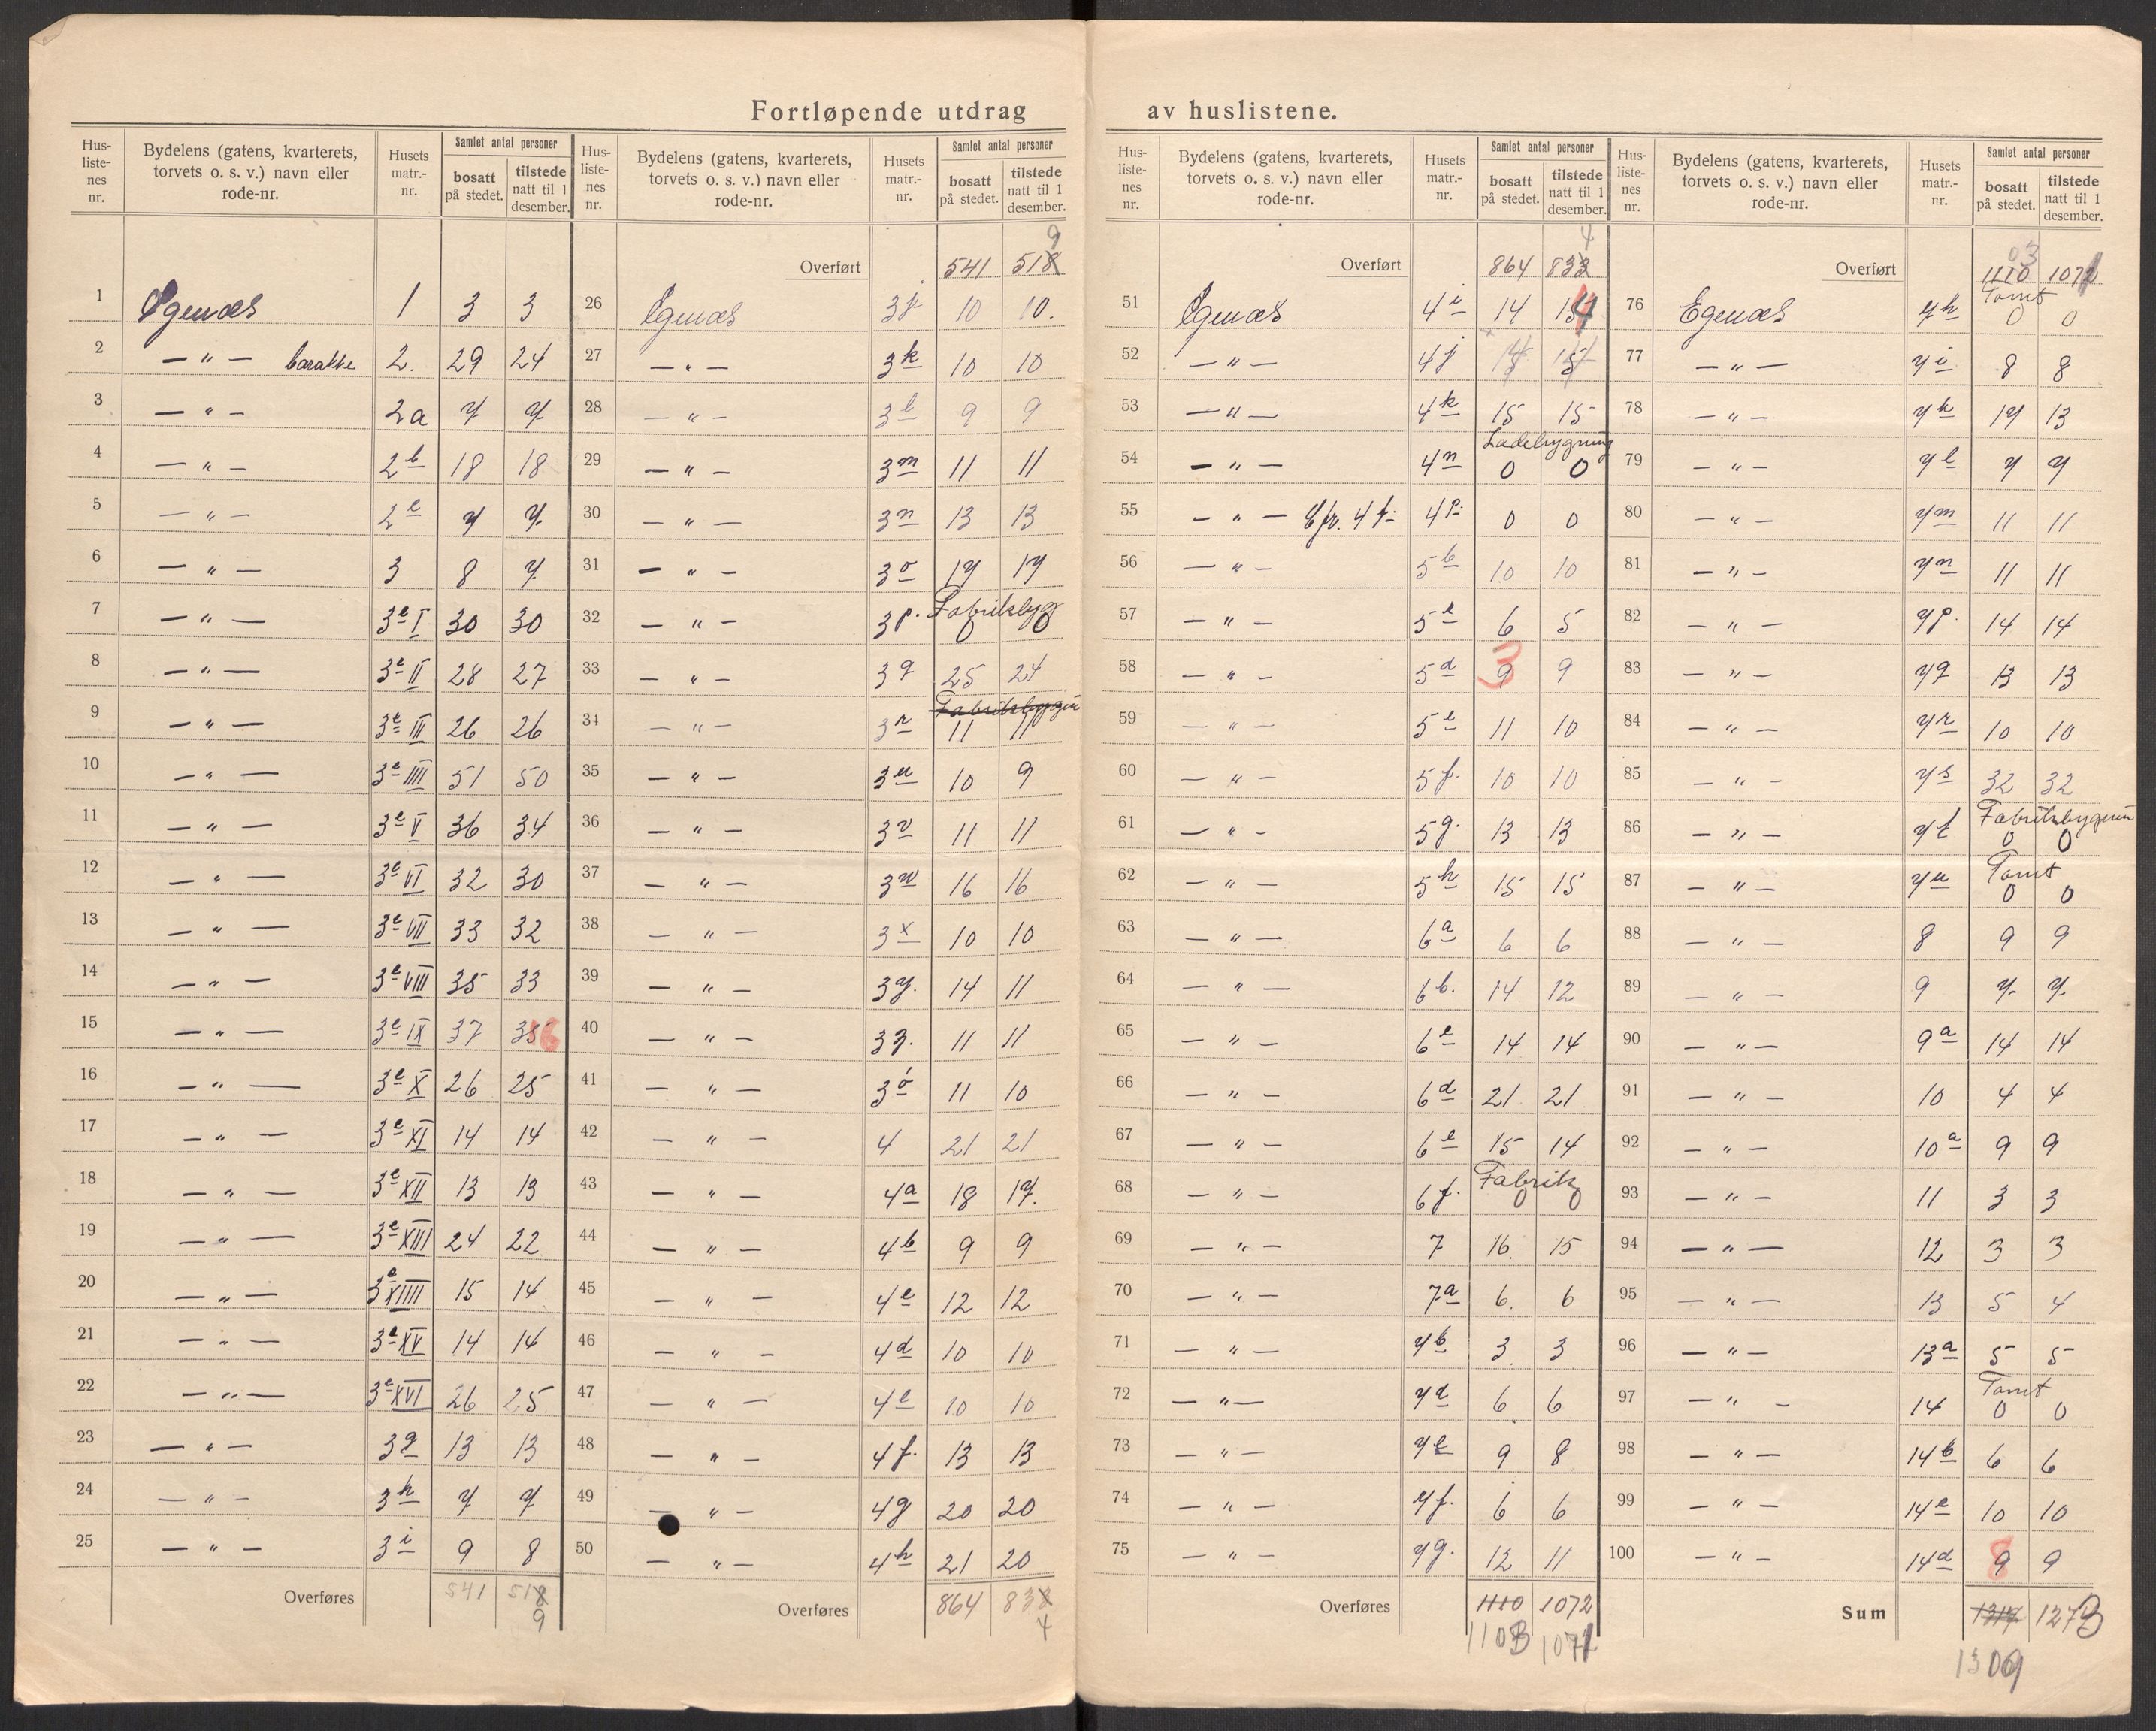 Fortløpende utdrag av huslistene.
Hus-liste-nes nr. | Bydelens (gatens, kvarterets, torvets o. s. v.) navn eller rode-nr. | Husets matr.-nr. | Samlet antal personer bosatt på stedet. | tilstede natt til 1 desember.
1 Egenæs 1 3 3
2 — " — barakke 2. 29 24
3 — " — 2a 7 7
4 — " — 2b 18 18
5 — " — 2c 7 7.
6 — " — 3 8 7.
7 — " — 3e I 30 30
8 — " — 3e II 28 27
9 — " — 3e III 26 26
10 — " — 3e IIII 51 50
11 — " — 3e V 36 34
12 — " — 3e VI 32 30
13 — " — 3e VII 33 32
14 — " — 3e VIII 35 33
15 — " — 3e IX 37 36
16 — " — 3e X 26 25
17 — " — 3e XI 14 14
18 — " — 3e XII 13 13
19 — " — 3e XIII 24 22
20 — " — 3e XIIII 15 14
21 — " — 3e XV 14 14
22 — " — 3e XVI 26 25
23 — " — 3g 13 13
24 — " — 3h 7 7
25 — " — 3i 9 8
Overføres 541 518 9
Hus-liste-nes nr. | Bydelens (gatens, kvarterets, torvets o. s. v.) navn eller rode-nr. | Husets matr.-nr. | Samlet antal personer bosatt på stedet. | tilstede natt til 1 desember.
Overført 541 518 9
26 Egenæs 3j 10 10.
27 — " — 3k 10 10
28 — " — 3l 9 9
29 — " — 3m 11 11
30 — " — 3n 13 13
31 — " — 3o 17 17
32 — " — 3p. Fabriksbyg 0 0
33 — " — 3q 25 24
34 — " — 3r Fabriksbygnin 11 11
35 — " — 3u 10 9
36 — " — 3v 11 11
37 — " — 3w 16 16
38 — " — 3x 10 10
39 — " — 3y. 14 11
40 — " — 3z. 11 11
41 — " — 3ó 11 10
42 — " — 4 21 21
43 — " — 4a 18 17.
44 — " — 4b 9 9
45 — " — 4c 12 12
46 — " — 4d 10 10
47 — " — 4e 10 10
48 — " — 4f. 13 13
49 — " — 4g 20 20
50 — " — 4h 21 20
Overføres 864 833 4
Hus-liste-nes nr. | Bydelens (gatens, kvarterets, torvets o. s. v.) navn eller rode-nr. | Husets matr.-nr. | Samlet antal personer bosatt på stedet. | tilstede natt til 1 desember.
Overført 864 833 4
51 Egenæs 4i 14 14
52 — " — 4j
53 — " — 4k 15 15
54 — " — 4n Ladebygning 0 0
55 — " — Cfr. 4 f. 4p. 0 0
56 — " — 5b 10 10
57 — " — 5c 6 5
58 — " — 5d 9 3 9
59 — " — 5e 11 10
60 — " — 5f. 10 10
61 — " — 5g. 13 13
62 — " — 5h 15 15
63 — " — 6a 6 6
64 — " — 6b. 14 12
65 — " — 6c 14 14
66 — " — 6d 21. 21
67 — " — 6e 15 14
68 — " — 6f. Fabrik 0 0
69 — " — 7 16. 15
70 — " — 7a 6. 6
71 — " — 7b 3. 3
72 — " — 7d 6 6
73 — " — 7e 9 8
74 — " — 7f. 6 6
75 — " — 7g. 12 11
Overføres 1110 1072
1103 1071
Hus-liste-nes nr. | Bydelens (gatens, kvarterets, torvets o. s. v.) navn eller rode-nr. | Husets matr.-nr. | Samlet antal personer bosatt på stedet. | tilstede natt til 1 desember.
Overført 1110 03 1071
76 Egenæs 7h Tomt 0 0
77 — " — 7i 8 8
78 — " — 7k 17 13
79 — " — 7l 7 7
80 — " — 7m 11 11
81 — " — 7n 11 11
82 — " — 7p. 14 14
83 — " — 7q 13 13
84 — " — 7r 10 10
85 — " — 7s 32 32
86 — " — 7t Fabriksbygnin 0 0
87 — " — 7u Tomt 0 0
88 — " — 8 9 9
89 — " — 9 7. 7.
90 — " — 9a 14 14
91 — " — 10 4 4
92 — " — 10a 9 9
93 — " — 11 3 3
94 — " — 12 3 3
95 — " — 13 5 4
96 — " — 13a 5 5
97 — " — 14 Tomt 0 0
98 — " — 14b 6 6
99 — " — 14c 10 10
100 — " — 14d 9 8 9
Sum 1317 1273
1309